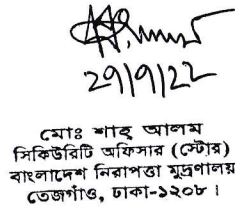 29/9/22
মোঃ শাহ্ আলম
সিকিউরিটি অফিসার (স্টোর)
বাংলাদেশ নিরাপত্তা মুদ্রণালয়
তেজগাঁও, ঢাকা-১২০৮।